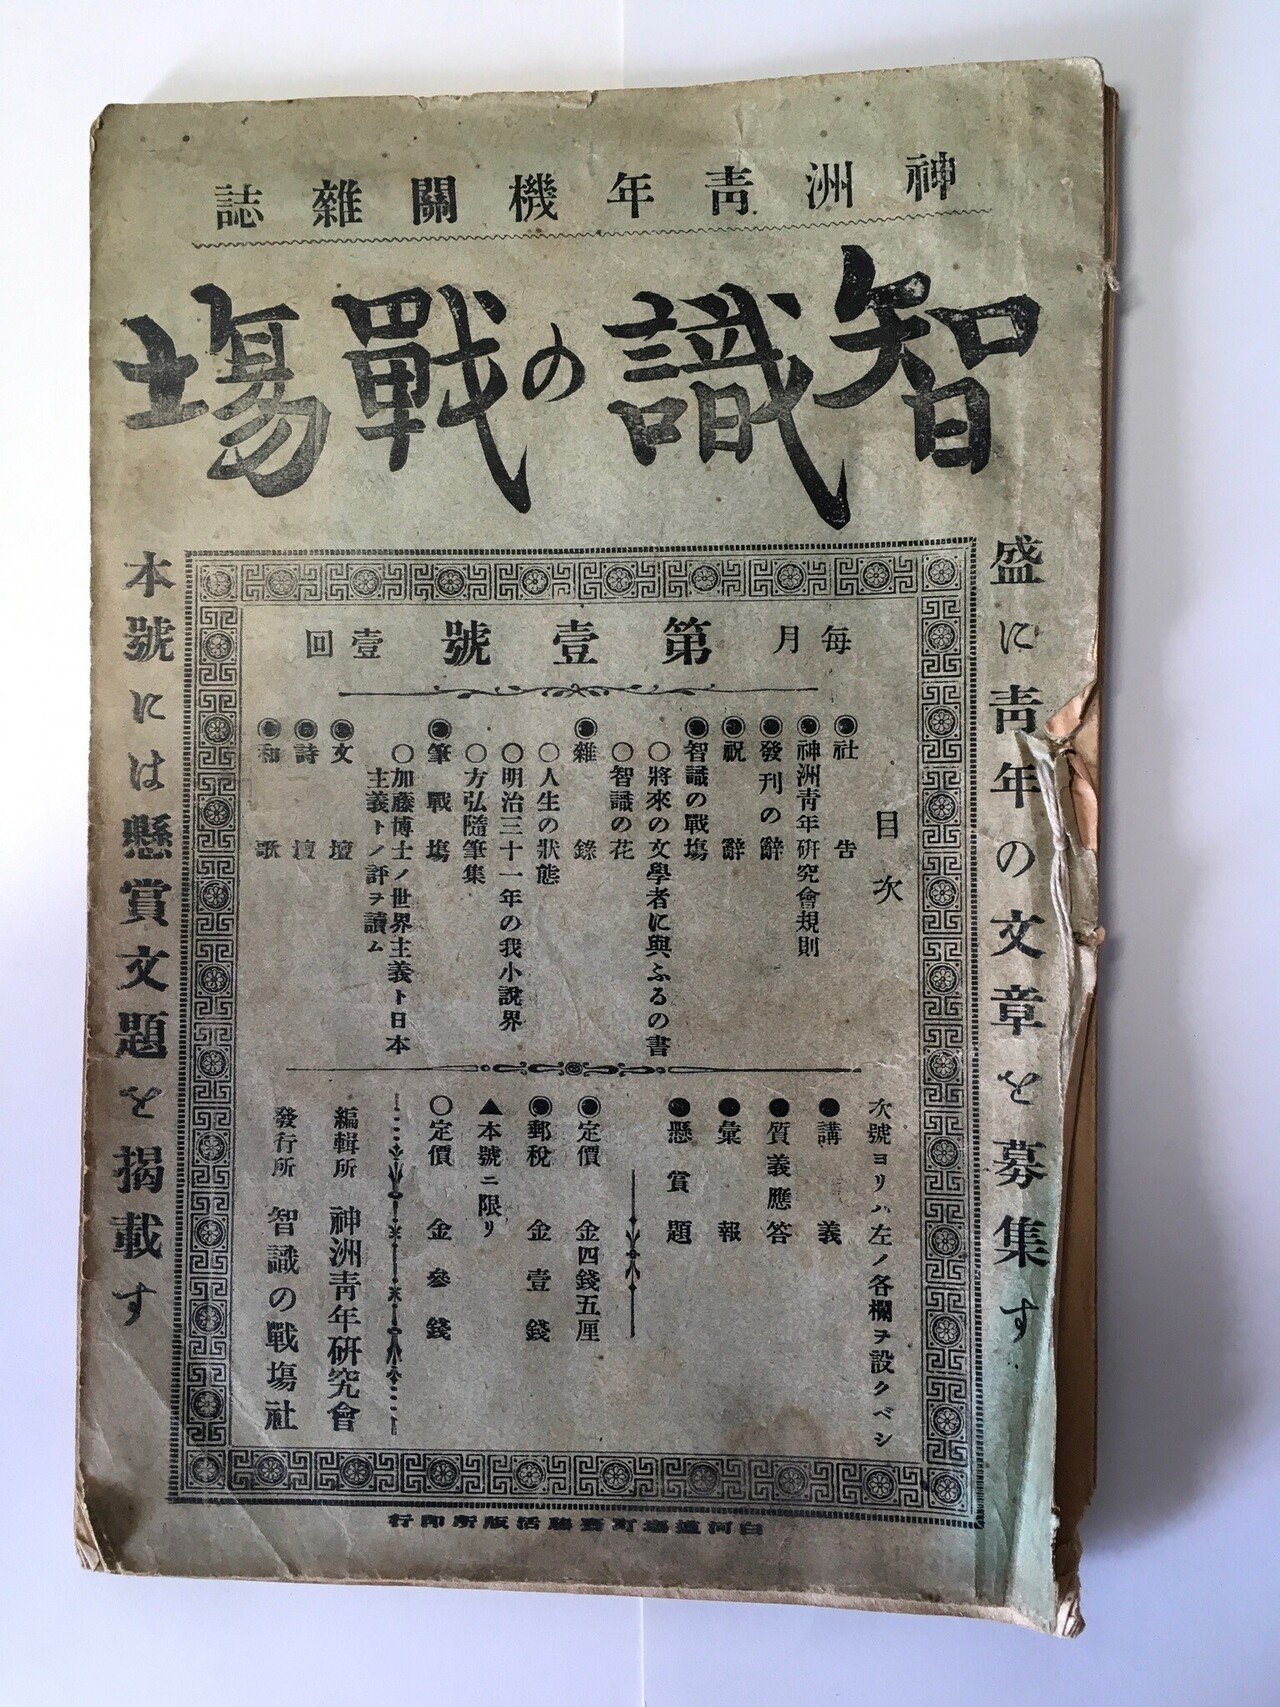 神洲靑年機關雜誌
智識の戰場
盛に靑年の文章を募集す
每月壹回
第壹號
目次
◉社告
◉神洲靑年硏究會規則
◉發刊の辭
◉祝辭
◉智識の戰塲
〇將來の文學者に與ふるの書
〇智識の花
◉雜錄
〇人生の狀態
〇明治三十一年の我小說界
〇方弘隨筆集
◉筆戰塲
〇加藤博士ノ世界主義ト日本
主義トノ評ヲ讀ム
◉文壇
◉詩壇
◉和歌
次號ヨリハ左ノ各欄ヲ設クベシ
●講義
●質義應答
●彙報
●懸賞題
◉定價 金四錢五厘
◉郵稅 金壹錢
▲本號ニ限リ
〇定價 金參錢
編輯所 神洲靑年硏究會
發行所 智識の戰塲社
本號には懸賞文題を揭載す
白河道塲町 活版所印行